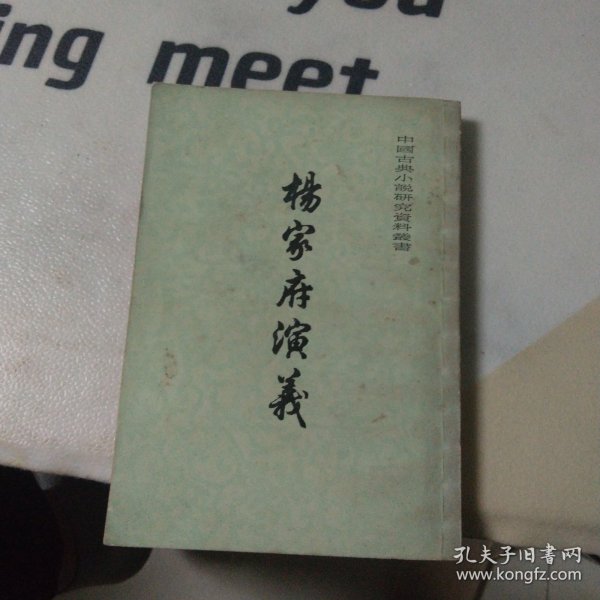 you
ing meet
中國古典小說研究資料叢書
楊家府演義
孔夫子旧書网
www.kongfz.com